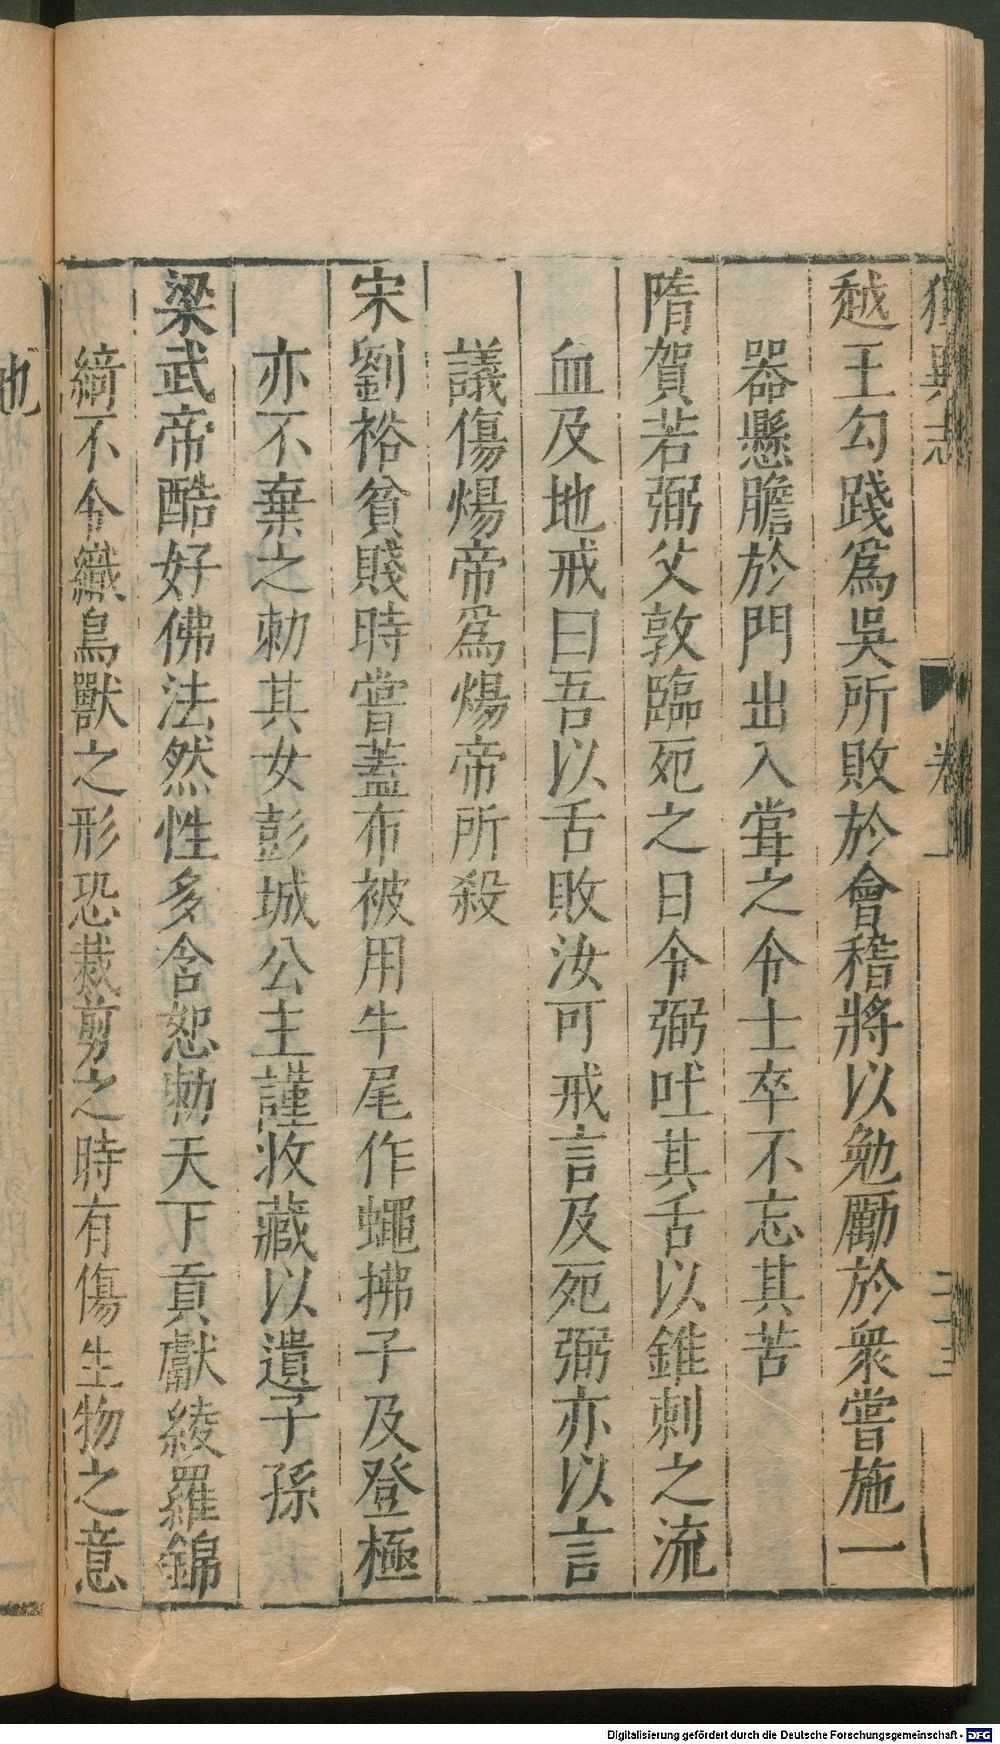 越王勾踐爲吳所敗於會稽將以勉勵於衆嘗施一
器懸膽於門出入甞之令士卒不忘其苦
隋賀若弼父敦臨死之日令弼吐其舌以錐刺之流
血及地戒曰吾以舌敗汝可戒言及死弼亦以言
議傷煬帝爲煬帝所殺
宋劉裕貧賤時嘗蓋布被用牛尾作蠅拂子及登極
亦不棄之勅其女彭城公主謹收藏以遺子孫
梁武帝酷好佛法然性多含恕勅天下貢獻綾羅錦
綺不令織鳥獸之形恐裁剪之時有傷生物之意
也
Digitalisierung gefördert durch die Deutsche Forschungsgemeinschaft - DFG